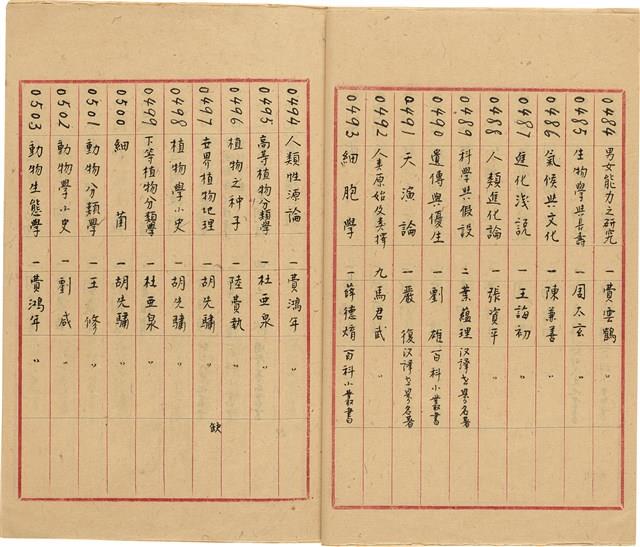 0484 男女能力之研究 一 費雲鶴 〃
0485 生物學與長壽 一 周太玄 〃
0486 氣候與文化 一 陳兼善 〃
0487 進化淺説 一 王誨初 〃
0488 人類進化論 一 張資平 〃
0489 科學與假設 二 葉蘊理 汉译世界名著
0490 遺傳與優生 一 劉雄 百科小叢書
0491 天演論 一 嚴復 汉译世界名著
0492 人类原始及类擇 九 馬君武 〃
0493 細胞學 一 薛德焴 百科小叢書
0494 人類性源論 一 費鴻年 〃
0495 高等植物分類學 一 杜亜泉 〃
0496 植物之种子 一 陸費執 〃
0497 世界植物地理 一 胡先驌 〃 缺
0498 植物學小史 一 胡先驌 〃
0499 下等植物分類學 一 杜亜泉 〃
0500 細菌 一 胡先驌 〃
0501 動物分類學 一 王修 〃
0502 動物學小史 一 劉咸 〃
0503 動物生態學 一 費鴻年 〃